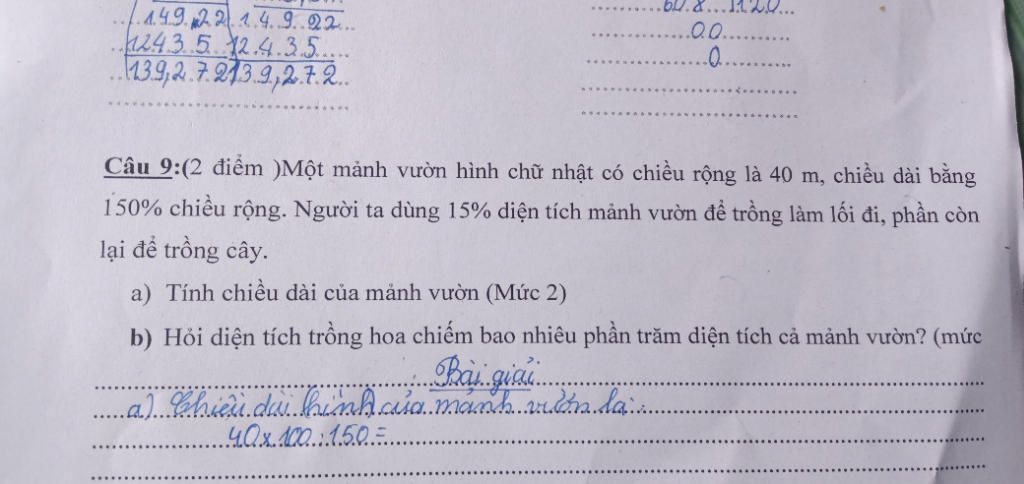 149,22 1 4 9 22
1243 5 12 4 3 5
139,2 7 2 139,2 7 2
60 8 1120
00
0
Câu 9:(2 điểm )Một mảnh vườn hình chữ nhật có chiều rộng là 40 m, chiều dài bằng
150% chiều rộng. Người ta dùng 15% diện tích mảnh vườn để trồng làm lối đi, phần còn
lại để trồng cây.
a) Tính chiều dài của mảnh vườn (Mức 2)
b) Hỏi diện tích trồng hoa chiếm bao nhiêu phần trăm diện tích cả mảnh vườn? (mức
Bài giải
a) Chiều dài hình của mảnh vườn là:
40 x 100 : 150 =